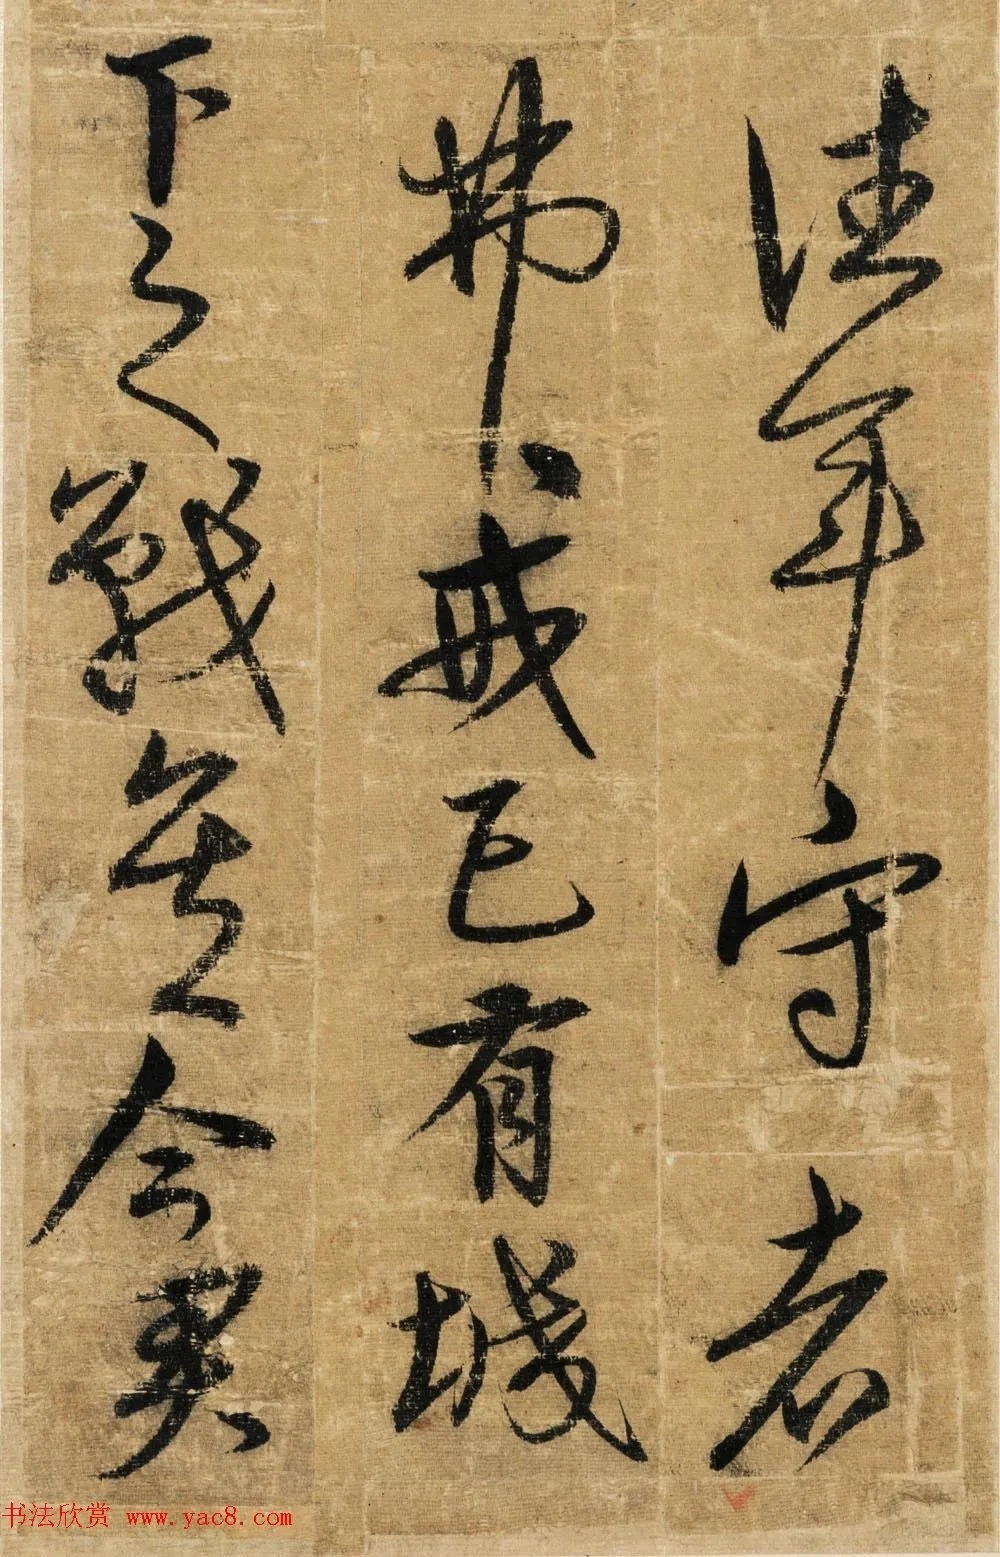 往年守者
戒已有城
下之戰矣今
书法欣赏 www.yac8.com